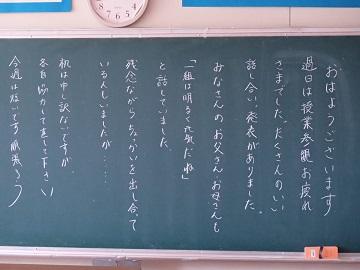 おはようございます
過日は授業参観お疲れ
さまでした。たくさんのいい
話し合い、発表がありました。
みなさんのお父さんお母さんも
「一組は明るく元気だね」
と話していました。
残念ながらちょっかいを出し合って
いる人もいましたが……
机は申し訳ないですが
各自協力して直して下さい
今週は短いです 頑張ろう